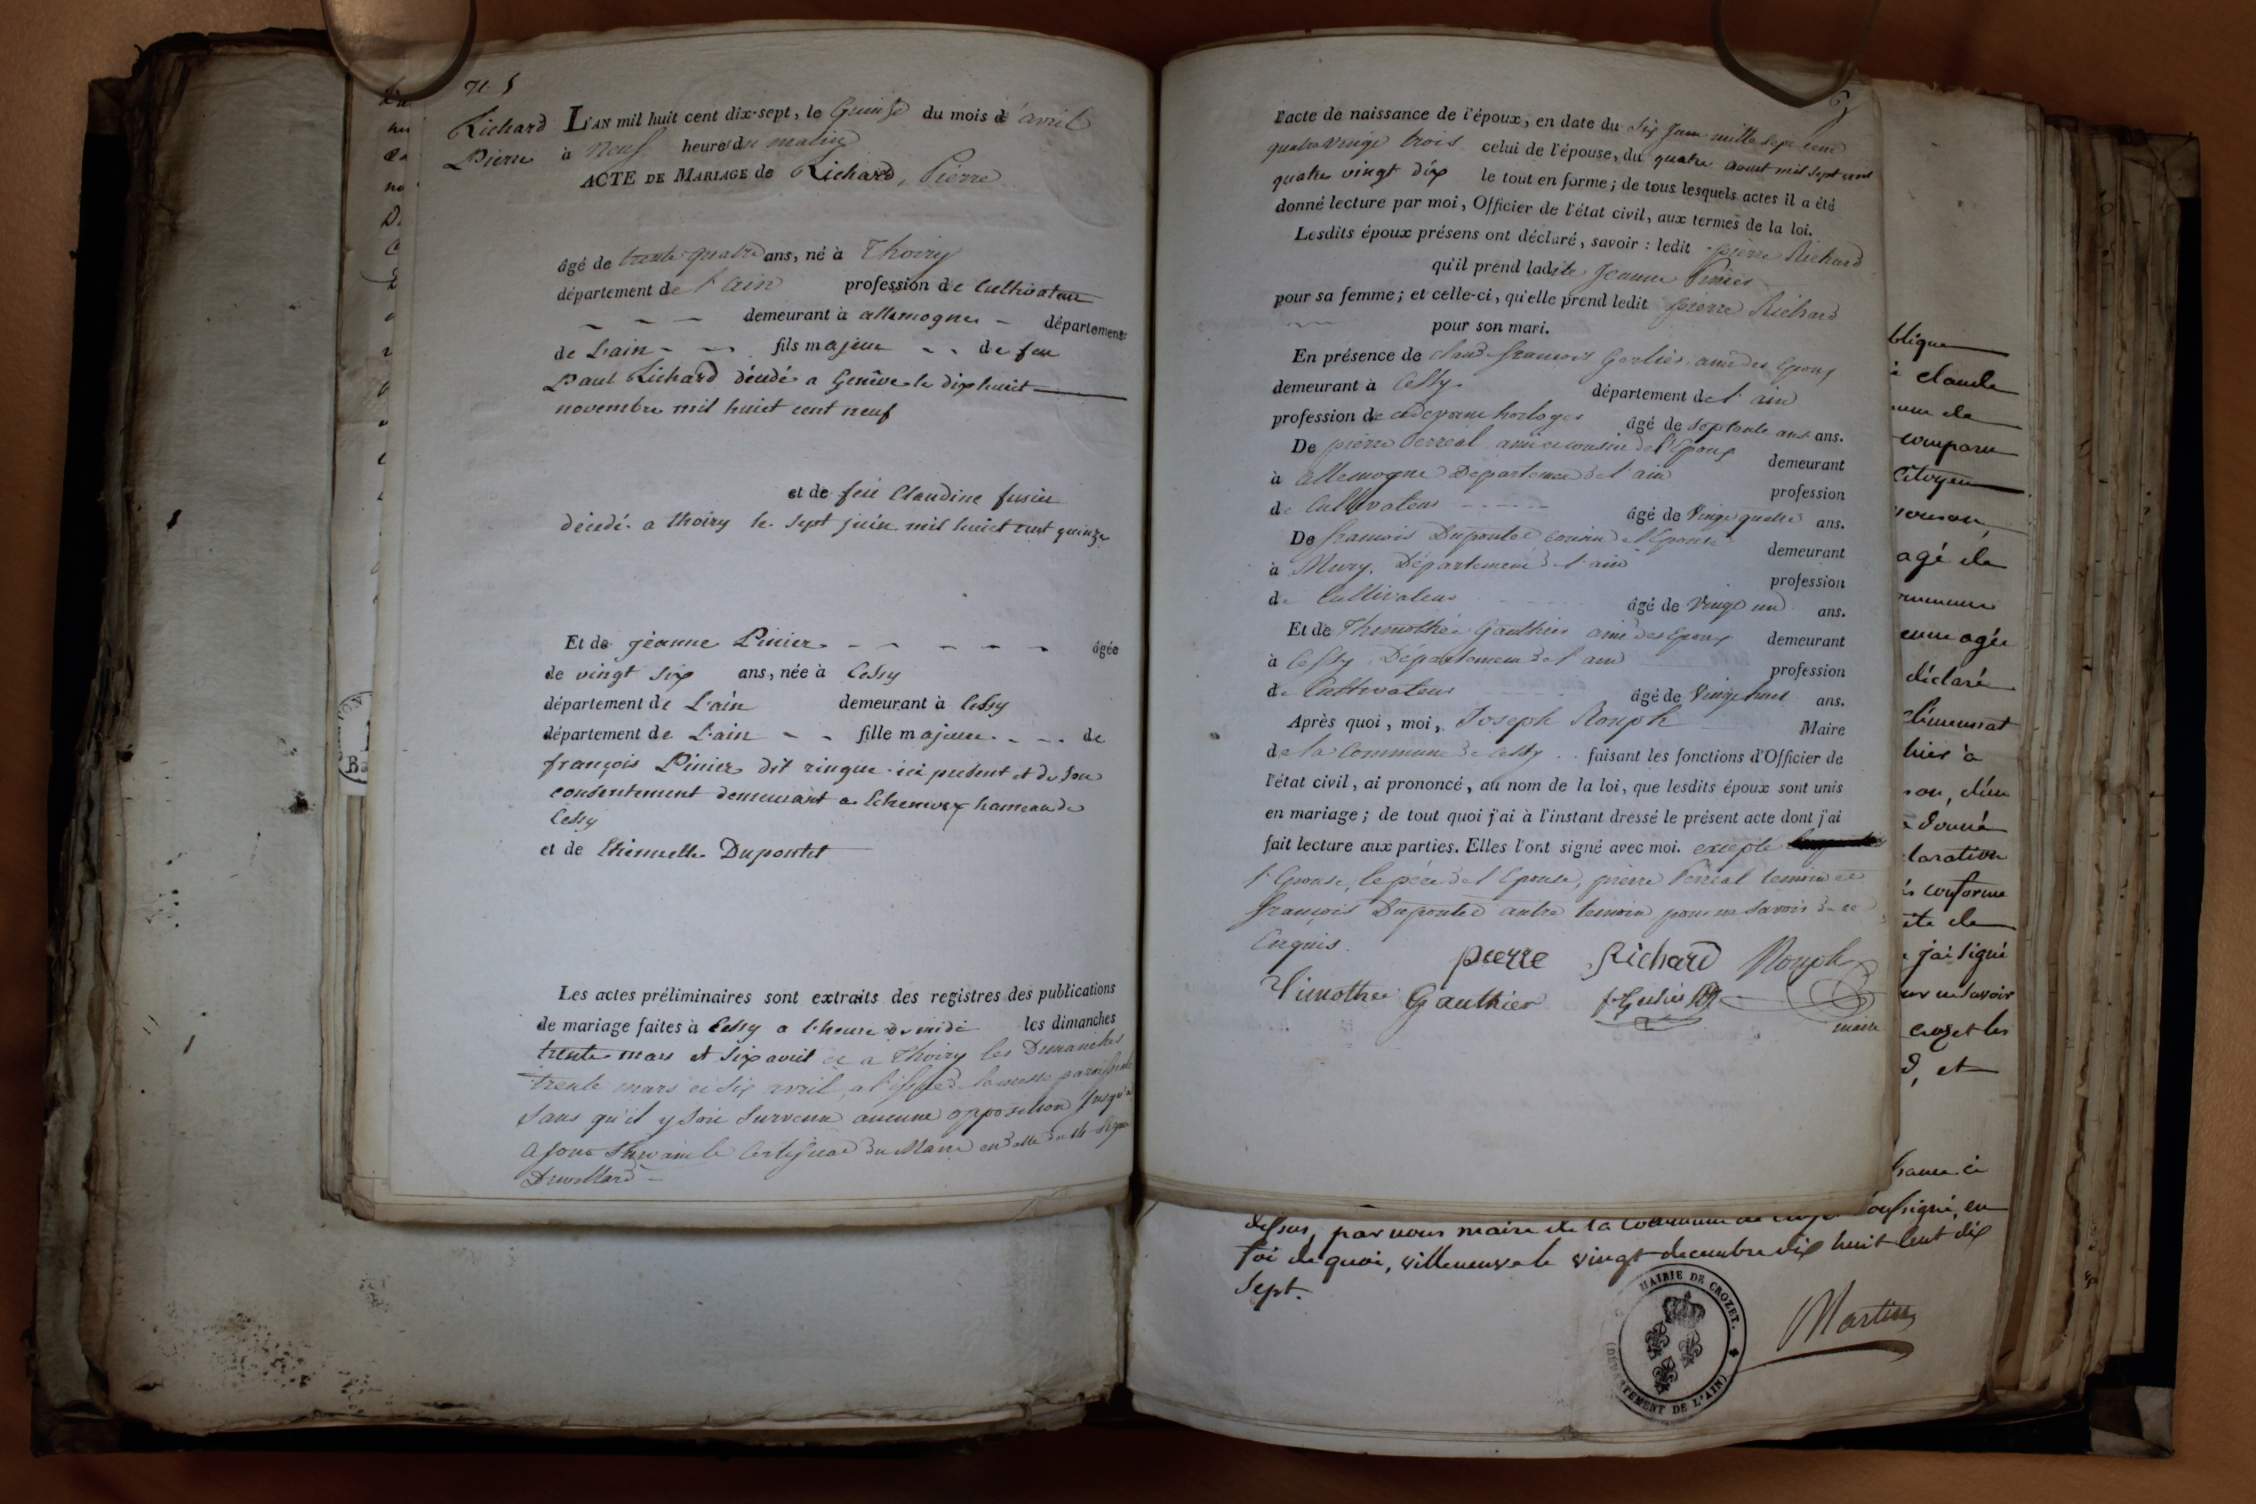 n. 5
Richard
Pierre
L'AN mil huit cent dix-sept, le Quinze du mois d'avril
à neuf heures du matin
ACTE DE MARIAGE de Richard, Pierre
âgé de trente quatre ans, né à Thoiry
département de l'ain profession de Cultivateur
demeurant à allemogne département
de L'ain fils majeur de feu
Paul Richard décédé a Genêve le dixhuit
novembre mil huict cent neuf
et de feüe Claudine fusier
décédé a thoiry le sept juin mil huict cent quinze
Et de jeanne Pinier âgée
de vingt six ans, née à Cessy
département de L'ain demeurant à Cessy
département de L'ain fille majeure de
françois Pinier dit ringue ici present et de son
consentement demeurant a Echenevex hameau de
Cessy
et de Etiennette Dupontet
Les actes préliminaires sont extraits des registres des publications
de mariage faites à Cessy a l'heure de midi les dimanches
trente mars et six avril et a Thoiry les Dimanches
trente mars et six avril, a l'issue de la messe paroissiale
sans qu'il y soit survenu aucune opposition jusqu'a
a jour suivant le Certificat du Maire en datte du 14 signé
l'acte de naissance de l'époux, en date du six juin mille sept cent
quatrevingt trois celui de l'épouse, du quatre aoust mil sept cent
quatre vingt dix le tout en forme; de tous lesquels actes il a été
donné lecture par moi, Officier de l'état civil, aux termes de la loi.
Lesdits époux présens ont déclaré, savoir: ledit pierre Richard
qu'il prend ladite Jeanne Pinier
pour sa femme; et celle-ci, qu'elle prend ledit pierre Richard
pour son mari.
En présence de claude francois Gerlier ami des Epoux
demeurant à Cessy département de l'ain
profession de cidevant horloger âgé de septante ans ans.
De pierre Perréal ami et cousin de l'Epoux demeurant
à allemogne Département de l'ain profession
de Cultivateur âgé de vingt quatre ans.
De francois Dupontet cousin de l'Epouse demeurant
à Mury, Département de l'ain profession
de Cultivateur âgé de vingt un ans.
Et de Thimothée Gauthier ami des Epoux demeurant
à Cessy Département de l'ain profession
de Cultivateur âgé de vingt huit ans.
Après quoi, moi, Joseph Rouph Maire
de la Commune de Cessy faisant les fonctions d'Officier de
l'état civil, ai prononcé, au nom de la loi, que lesdits époux sont unis
en mariage; de tout quoi j'ai à l'instant dressé le présent acte dont j'ai
fait lecture aux parties. Elles l'ont signé avec moi. excepté
l'Epouse, le père de l'Epouse, pierre Perréal temoin et
françois Dupontet autre temoin pour ne savoir de ce
Enquis.
pierre Richard Rouph
Timothée Gauthier
maire
blique
claude
comparu
Citoyen
agé de
agée
déclaré
hier à
donné
claration
conforme
j'ai signé
savoir
et
dessus, par nous maire de la Commune de soussigné, en
foi de quoi, villeneuve le vingt decembre dix huit cent dix
sept.
MAIRIE DE CROZET.
(DÉPARTEMENT DE L'AIN)
Martin